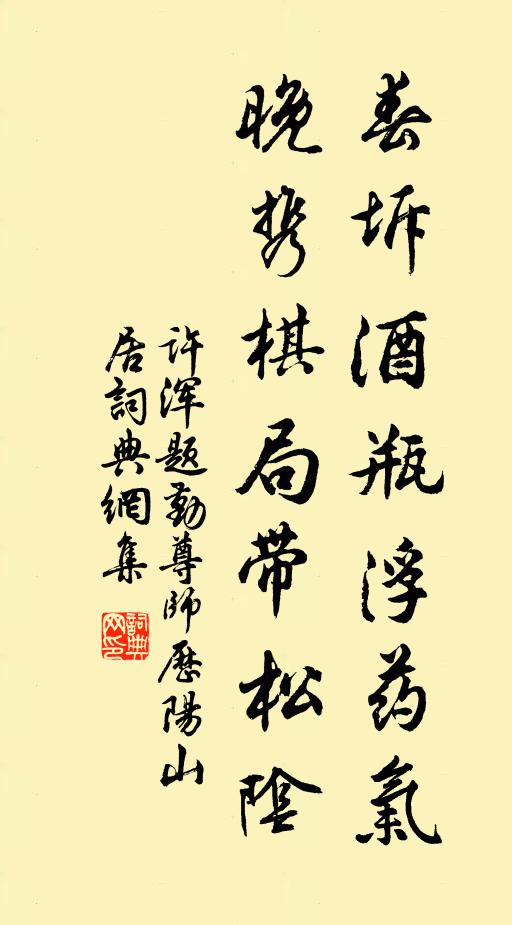 春坼酒瓶浮药氣
晚携棋局带松陰
许浑题勤尊师歷陽山
居詞典網集
詞典网印